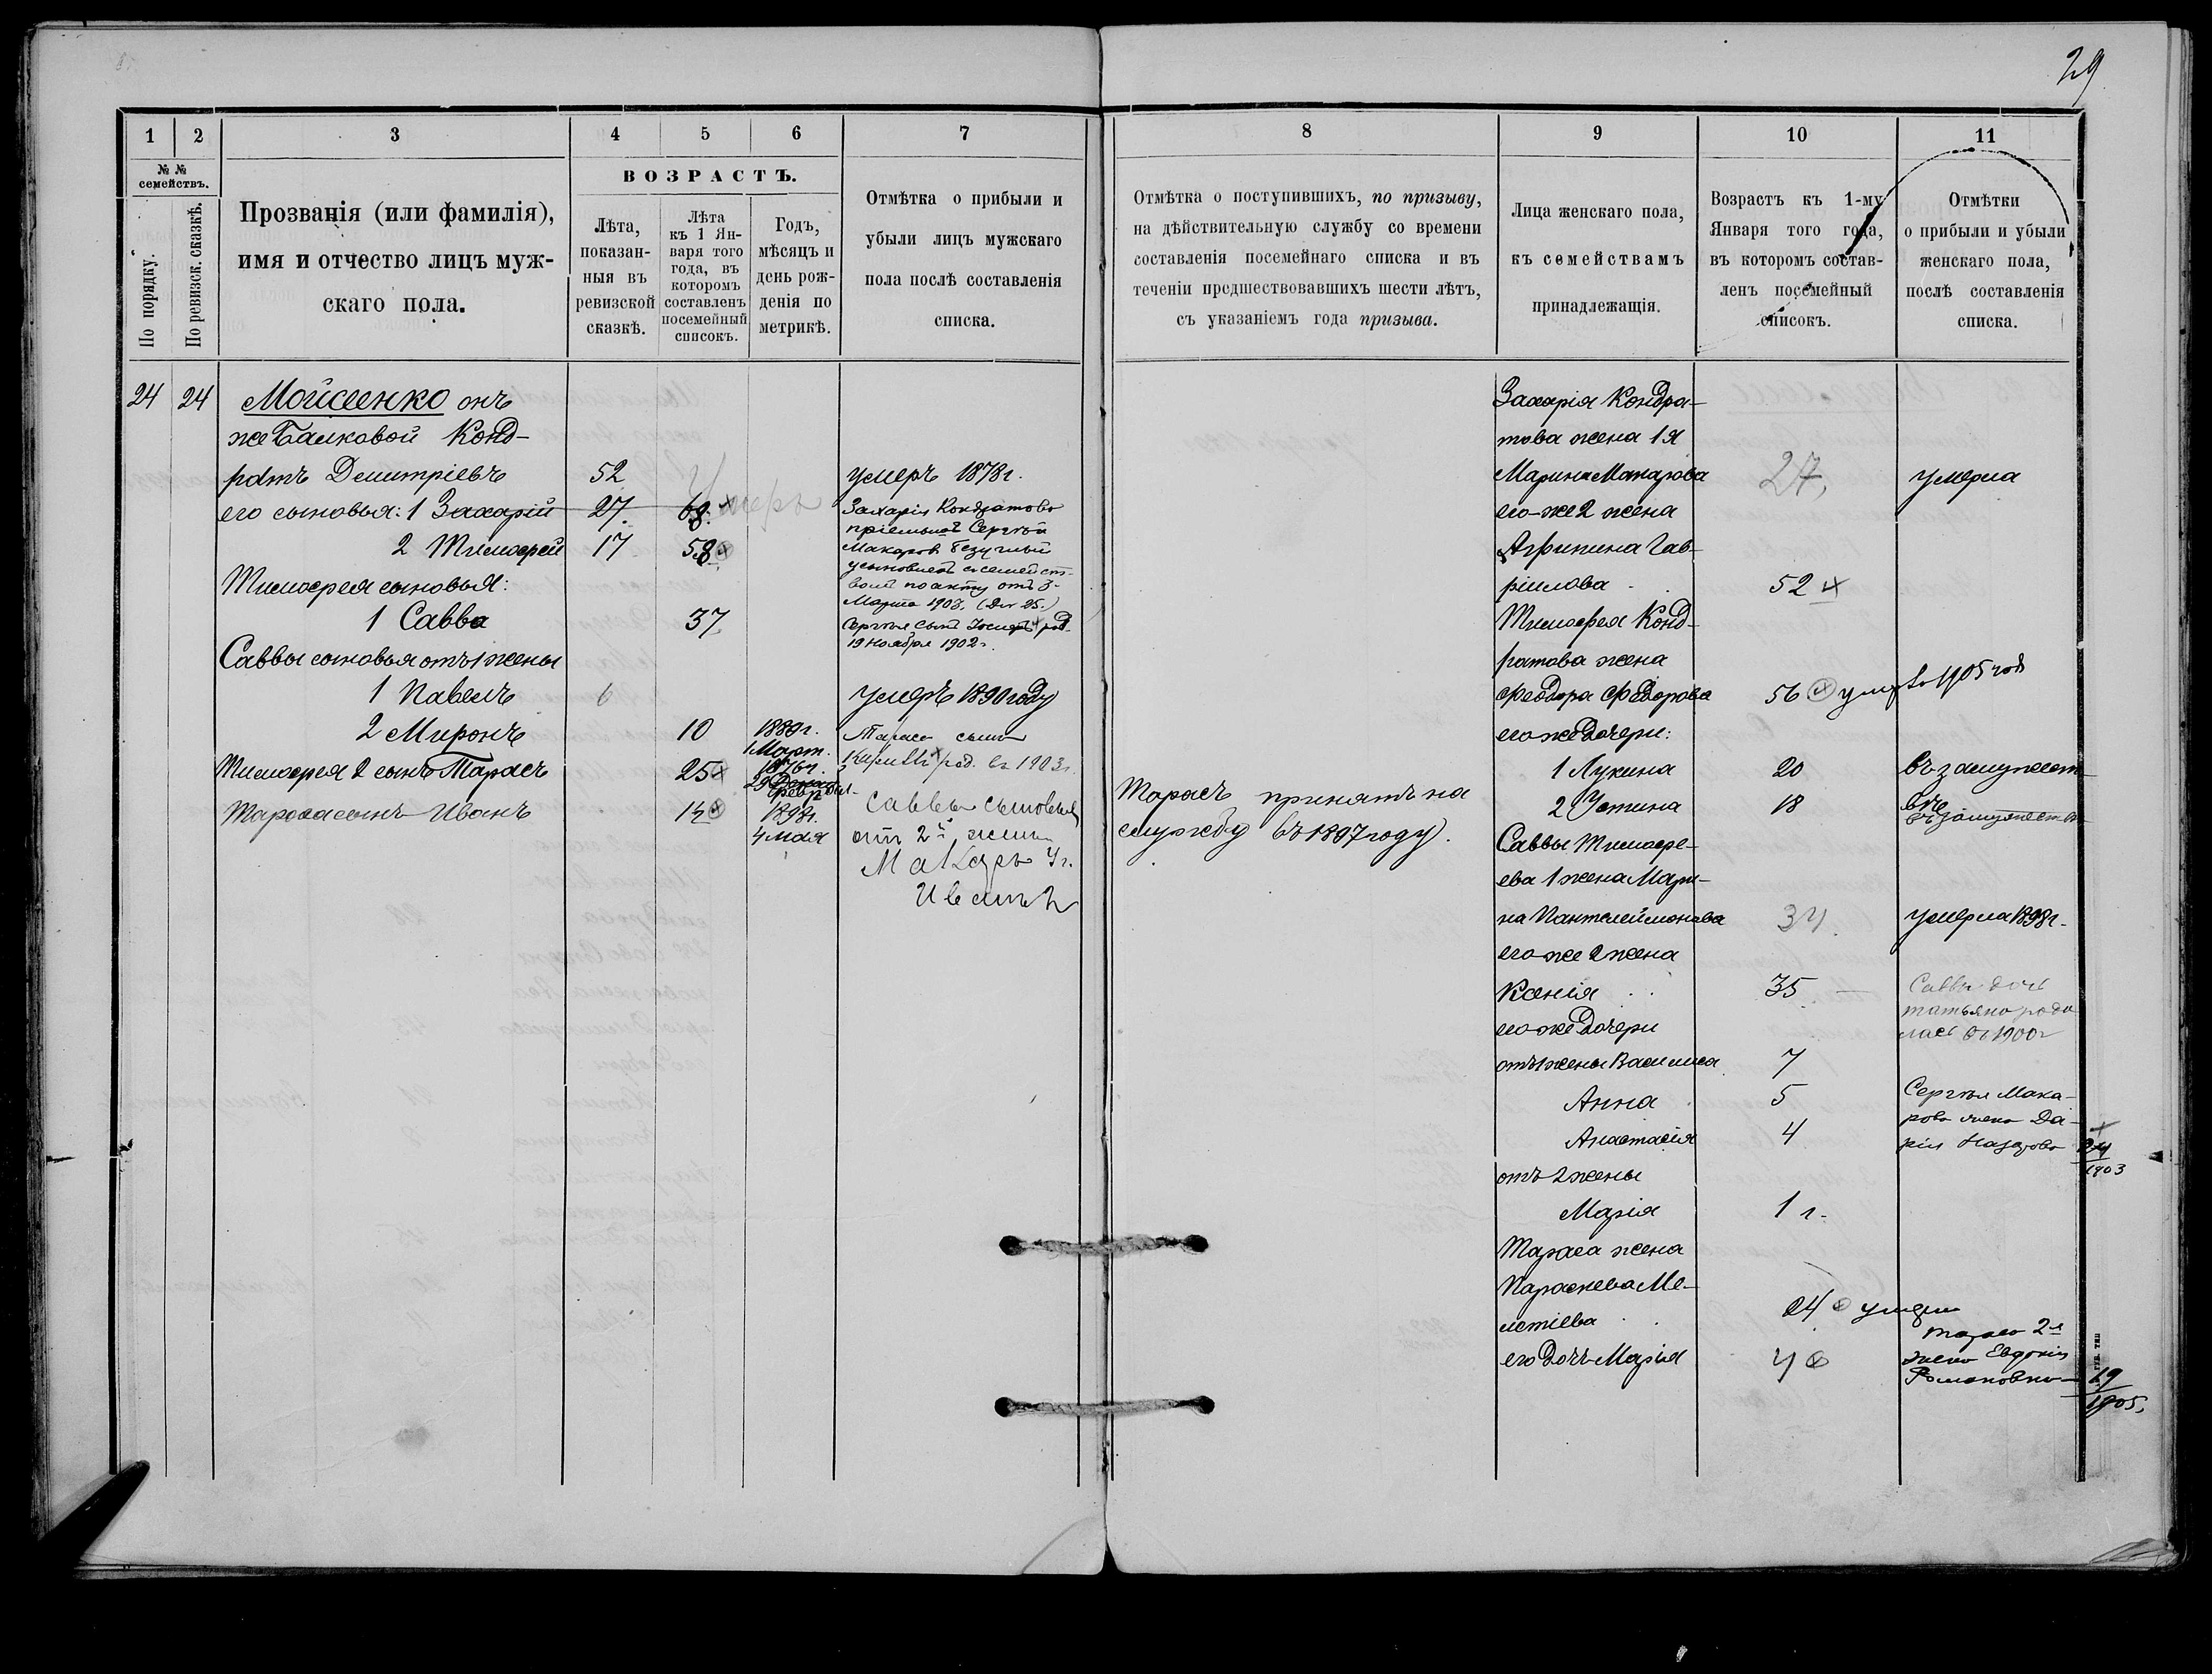 29
1
2
3
4
5
6
7
№ №
семействъ.
По порядку.
По ревизск. сказкѣ.
Прозванія (или фамилія),
имя и отчество лицъ муж-
скаго пола.
ВОЗРАСТЪ.
Лѣта,
показан-
ныя въ
ревизской
сказкѣ.
Лѣта
къ 1 Ян-
варя того
года, въ
которомъ
составленъ
посемейный
списокъ.
Годъ,
мѣсяцъ и
день рож-
денія по
метрикѣ.
Отмѣтка о прибыли и
убыли лицъ мужскаго
пола послѣ составленія
списка.
24 24 Мойсеенко онъ
же Балковой Конд-
ратъ Демитріевъ 52 умеръ 1878г.
его сыновья: 1 Захарій 27. 68. умеръ
2 Тимофей 17 58
Захарія Кондратова
пріемышъ Сергѣй
Макаровъ
усыновленъ семейст-
вомъ по акту отъ 3
Марта 1903.
Сергѣя сынъ Іосифъ род.
19 Ноября 1902г.
Тимофея сыновья:
1 Савва 37
Саввы сыновья отъ 1 жены
1 Павелъ 6 умеръ 1890 году
2 Миронъ 10 1889г.
1 Март.
Тимофея 2 сынъ Тарасъ 25 1876г.
29
Февр
Тараса сынъ Иванъ 1898г.
4 мая
Тараса сынъ
Кириллъ род. въ 1903г.
Саввы сыновья
отъ 2й жены
Макаръ 4г.
8
9
10
11
Отмѣтка о поступившихъ, по призыву,
на дѣйствительную службу со времени
составленія посемейнаго списка и въ
теченіи предшествовавшихъ шести лѣтъ,
съ указаніемъ года призыва.
Лица женскаго пола,
къ семействамъ
принадлежащія.
Возрастъ къ 1-му
Января того года,
въ которомъ состав-
ленъ посемейный
списокъ.
Отмѣтки
о прибыли и убыли
женскаго пола,
послѣ составленія
списка.
Тарасъ принятъ на
службу въ 1897 году.
Захарія Кондра-
това жена 1я
Марина Макарова 27, умерла
его-же 2 жена
Агрипина Гав-
ріилова 52
Тимофея Конд-
ратова жена
Феодора Федорова 56 1905 год
его же дочери:
1 Лукина 20 въ замужест-
вѣ
2 Устина 18 въ замужеств
Саввы Тимофе-
ева 1 жена Мари-
на Пантелеймонова 34. умерла 1898г.
его же 2 жена
Ксенія 35
Саввы дочь
татьяна роди
лась въ 1900г
его же дочери
отъ 1 жены Василиса 7
Анна 5
Анастасія 4
Сергѣя Мака-
рова жена Да-
рія Назарова 24
1903
отъ 2 жены
Марія 1 г.
Тараса жена
Параскева Ме-
летіева 24
его дочь Марія 4
Тараса 2я
жена Евдокія
Романовна 19
1905.